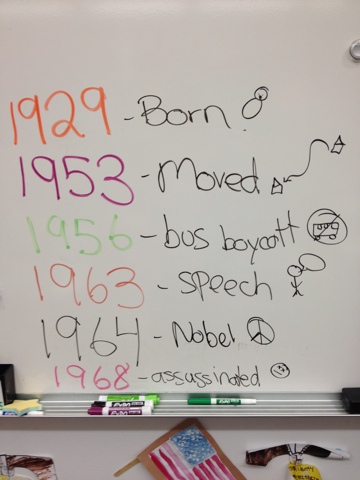 1929 - Born
1953 - Moved
1956 - bus boycott
1963 - Speech
1964 - Nobel
1968 - assussinated